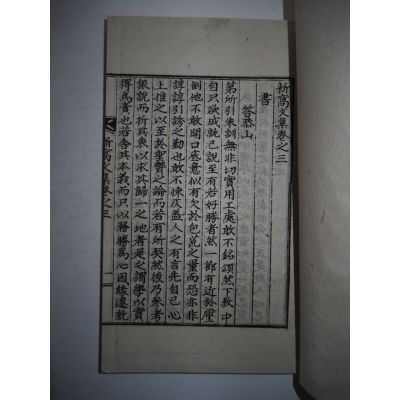 新窩文集卷之三
書
答恭山
第所引朱訓無非切實用工處敢不銘頌然下教中
自只欲成就己說至有若好勝者然一節有近於壓
倒他不敢開口底意似有欠於包荒之量而恐亦非
諄諄引誘之勤也敢不悚仄盖人之有言先自己心
上推之以至於聖賢之論而若有所契然後乃參考
衆說而折其衷以求其歸一之地者是之謂學以實
得爲貴也若舍其本義而只以務勝爲心因緣遷就
新窩文集卷之三 一